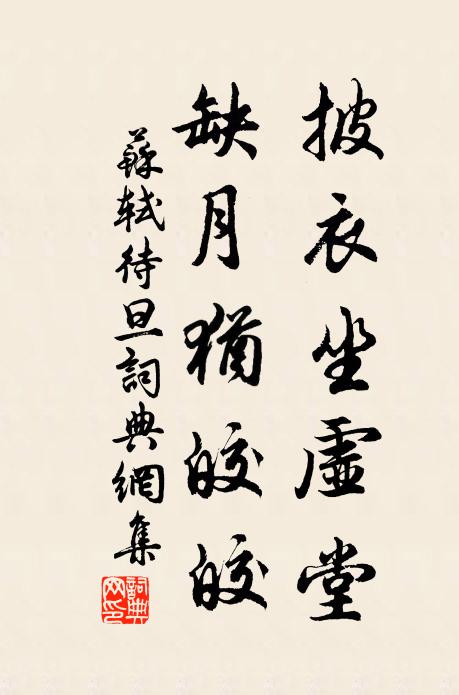 披衣坐虛堂
缺月猶皎皎
蘇軾待旦詞典網集
詞典網印